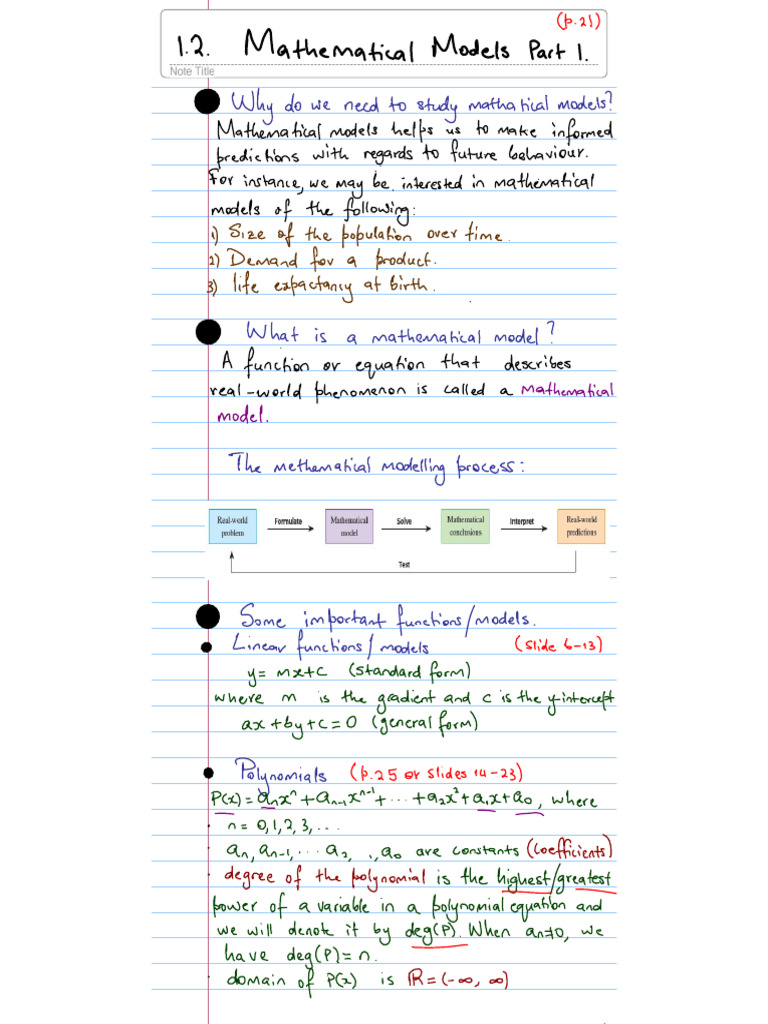 (p.21)
1.2. Mathematical Models Part 1.
Note Title
Why do we need to study mathatical models?
Mathematical models helps us to make informed
predictions with regards to future behaviour.
For instance, we may be interested in mathematical
models of the following:
1) Size of the population over time.
2) Demand for a product.
3) life expactancy at birth.
What is a mathematical model?
A function or equation that describes
real-world phenomenon is called a mathematical
model.
The methematical modelling process:
Real-world problem Formulate Mathematical model Solve Mathematical conclusions Interpret Real-world predictions
Test
Some important functions/models.
Linear functions/models (Slide 6-13)
y = mx+c (standard form)
where m is the gradient and c is the y-intercept
ax+by+c=0 (general form)
Polynomials (p.25 or slides 14-23)
P(x)=aₙxⁿ+aₙ₋₁xⁿ⁻¹+...+a₂x²+a₁x+a₀, where
n=0,1,2,3,...
aₙ,aₙ₋₁,...a₂, ,₁,a₀ are constants (coefficients)
degree of the polynomial is the highest/greatest
power of a variable in a polynomial equation and
we will denote it by deg(P). When aₙ≠0, we
have deg(P)=n.
domain of P(x) is ℝ=(-∞,∞)